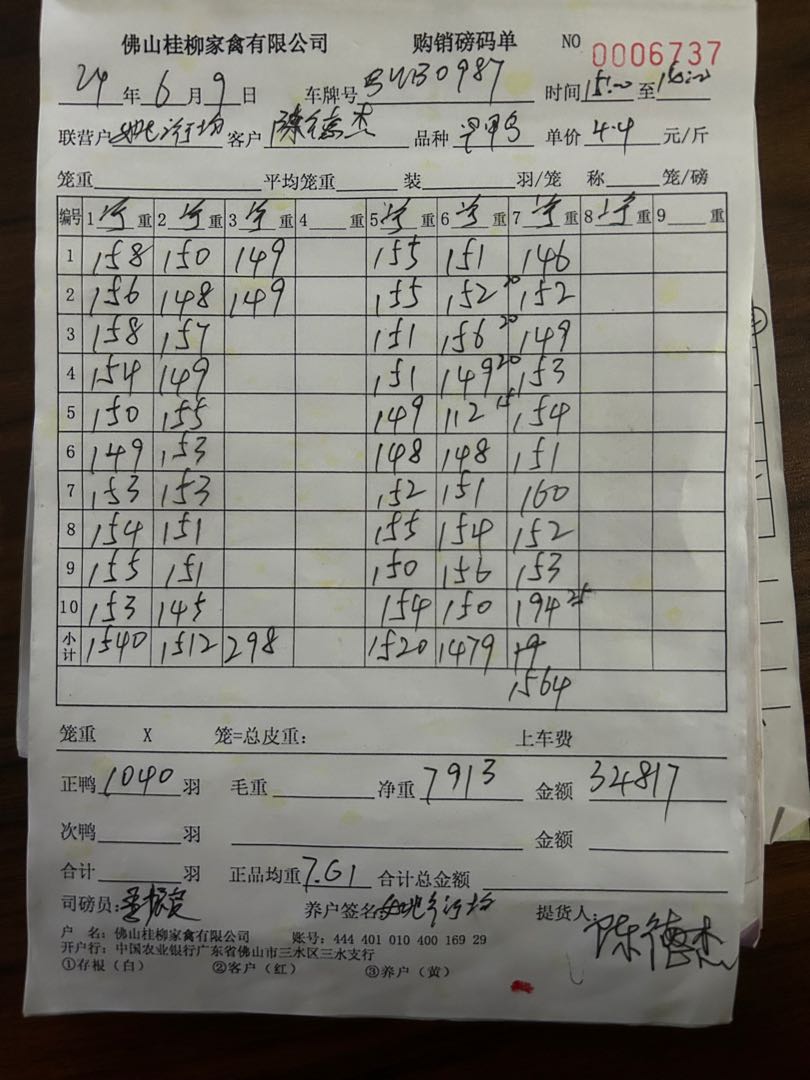 佛山桂柳家禽有限公司 购销磅码单 NO 0006737
24年6月9日 车牌号 B0987 时间15:00至15:00
联营户 客户 陈德杰 品种 单价4.4元/斤
笼重 平均笼重 装 羽/笼 称 笼/磅
编号 1 重 2 重 3 重 4 重 5 重 6 重 7 重 8 重 9 重
1 158 150 149 155 151 146
2 156 148 149 155 152 20 152
3 158 157 151 156 20 149
4 154 149 151 149 20 153
5 150 155 149 112 15 154
6 149 153 148 148 151
7 153 153 152 151 160
8 154 151 155 154 152
9 155 151 150 156 153
10 153 145 154 150 194 25
小计 1540 1512 298 1520 1479
1564
笼重 X 笼=总皮重: 上车费
正鸭1040羽 毛重 净重7913 金额34817
次鸭 羽 金额
合计 羽 正品均重7.61 合计总金额
司磅员: 养户签名 提货人: 陈德杰
户 名: 佛山桂柳家禽有限公司 账号: 444 401 010 400 169 29
开户行: 中国农业银行广东省佛山市三水区三水支行
①存根(白) ②客户(红) ③养户(黄)